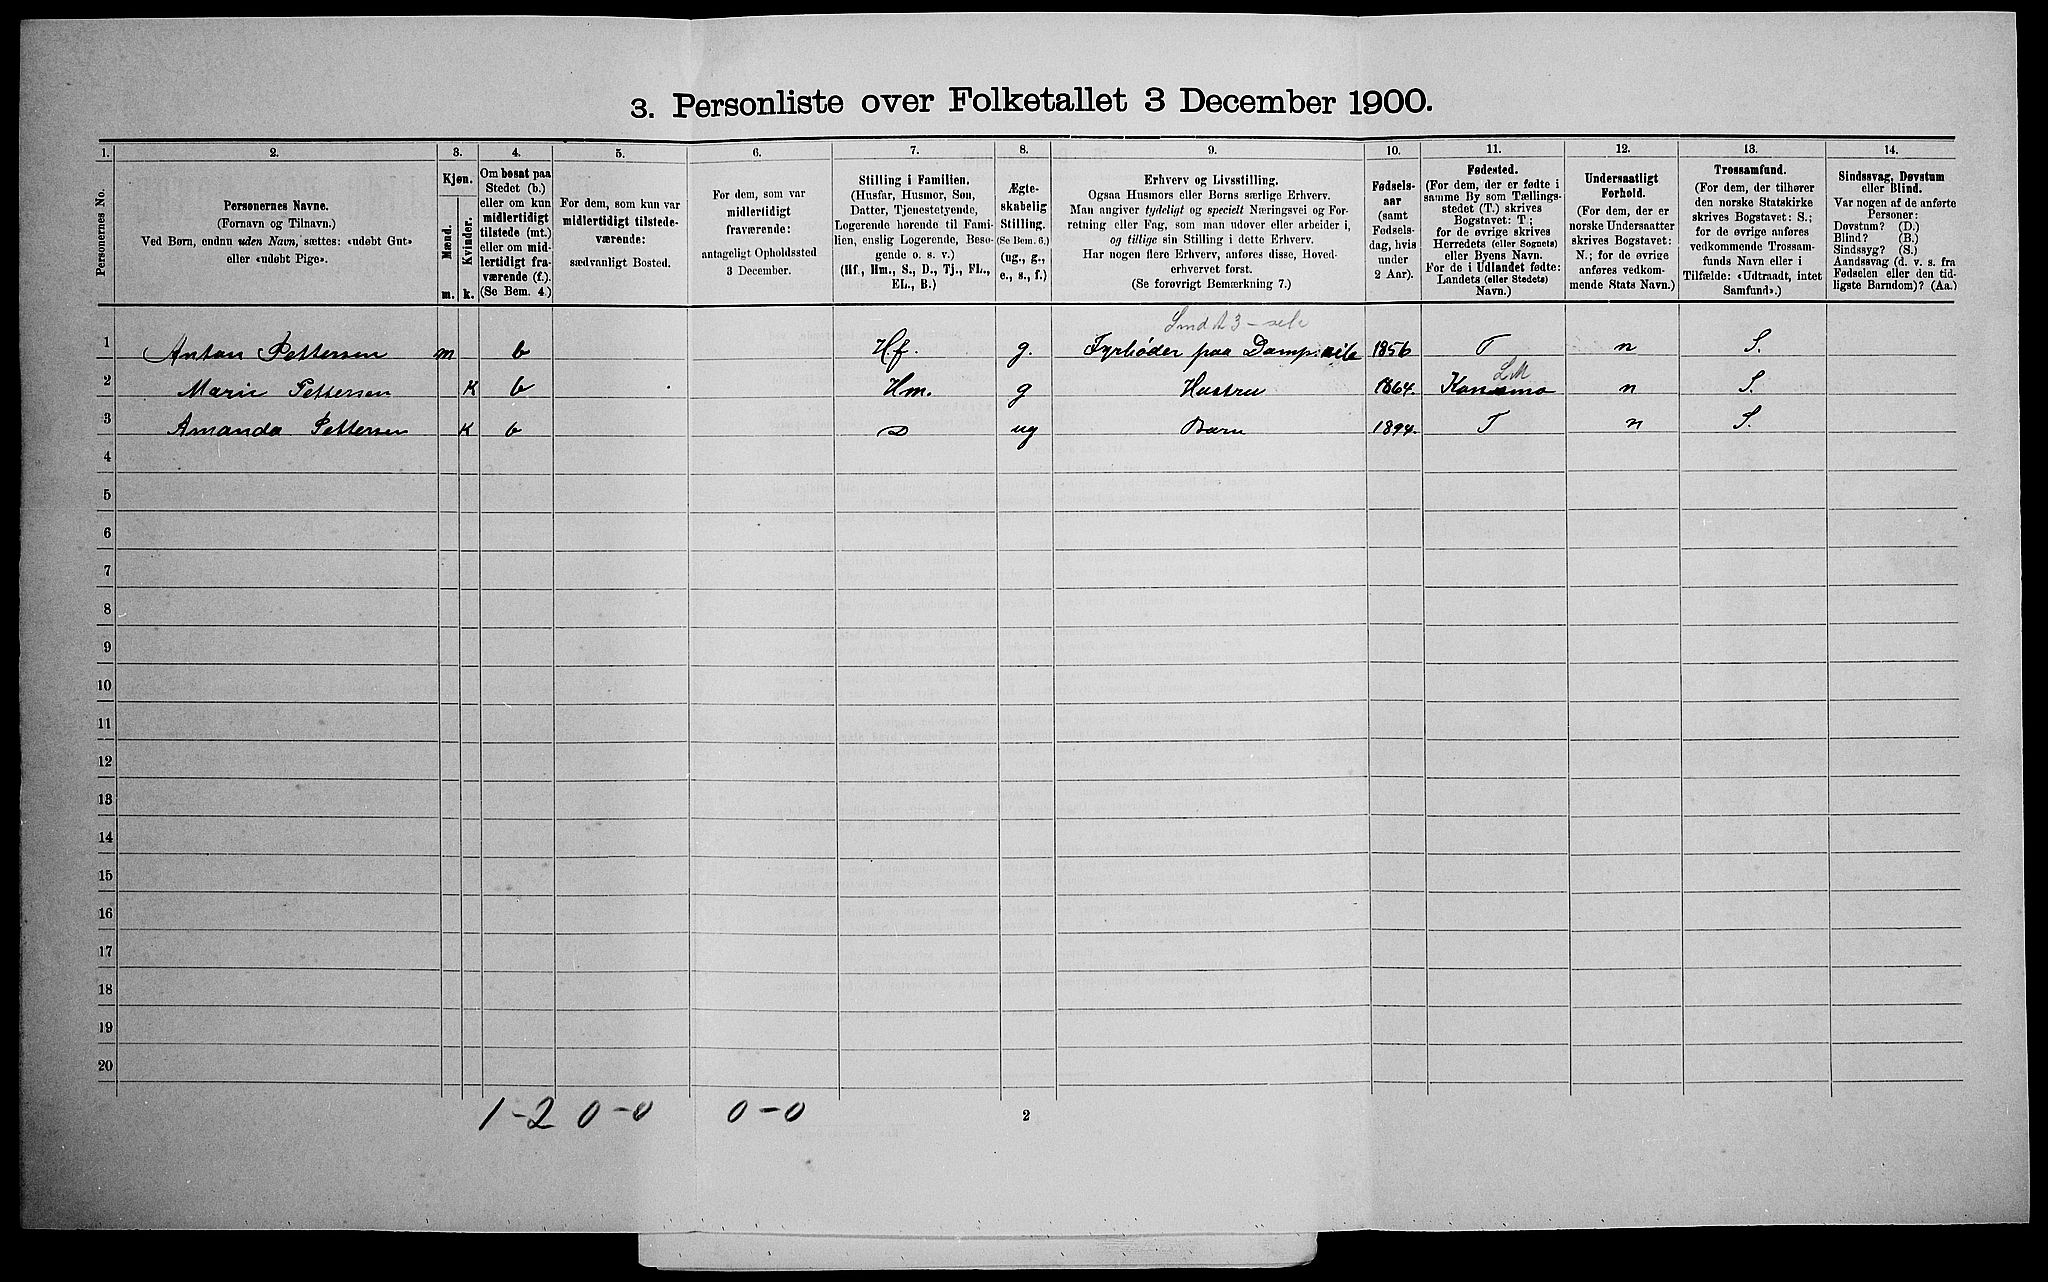 3. Personliste over Folketallet 3 December 1900.
1. 2. 3. 4. 5. 6. 7. 8. 9. 10. 11. 12. 13. 14.
Personernes No.
Personernes Navne.
(Fornavn og Tilnavn.)
Ved Børn, endnu uden Navn, sættes: «udøbt Gut»
eller «udøbt Pige».
Kjøn.
Mænd.
Kvinder.
m. k.
Om bosat paa
Stedet (b.)
eller om kun
midlertidigt
tilstede (mt.)
eller om mid-
lertidigt fra-
værende (f.)
(Se Bem. 4.)
For dem, som kun var
midlertidigt tilstede-
værende:
sædvanligt Bosted.
For dem, som var
midlertidigt
fraværende:
antageligt Opholdssted
3 December.
Stilling i Familien.
(Husfar, Husmor, Søn,
Datter, Tjenestetyende,
Logerende hørende til Fami-
lien, enslig Logerende, Besø-
gende o. s. v.)
(Hf., Hm., S., D., Tj., FL.,
EL., B.)
Ægte-
skabelig
Stilling.
(Se Bem. 6.)
(ug., g.,
e., s., f.)
Erhverv og Livsstilling.
Ogsaa Husmors eller Børns særlige Erhverv.
Man angiver tydeligt og specielt Næringsvei og For-
retning eller Fag, som man udøver eller arbeider i,
og tillige sin Stilling i dette Erhverv.
Har nogen flere Erhverv, anføres disse, Hoved-
erhvervet først.
(Se forøvrigt Bemærkning 7.)
Fødsels-
aar
(samt
Fødsels-
dag, hvis
under
2 Aar).
Fødested.
(For dem, der er fødte i
samme By som Tællings-
stedet (T.) skrives
Bogstavet: T.;
for de øvrige skrives
Herredets (eller Sognets)
eller Byens Navn.
For de i Udlandet fødte:
Landets (eller Stedets)
Navn.)
Undersaatligt
Forhold.
(For dem, der er
norske Undersaatter
skrives Bogstavet:
N.; for de øvrige
anføres vedkom-
mende Stats Navn.)
Trossamfund.
(For dem, der tilhører
den norske Statskirke
skrives Bogstavet: S.;
for de øvrige anføres
vedkommende Trossam-
funds Navn eller i
Tilfælde: «Udtraadt, intet
Samfund».)
Sindssvag, Døvstum
eller Blind.
Var nogen af de anførte
Personer:
Døvstum? (D.)
Blind? (B.)
Sindssyg? (S.)
Aandssvag (d. v. s. fra
Fødselen eller den tid-
ligste Barndom)? (Aa.)
1 Anton Pettersen m b Hf. g. Fyrbøder paa 1856 T n S.
2 Marie Pettersen K b Hm. g Hustru 1864. n S.
3 Amanda Pettersen K b D ug Barn 1894. T n S.
4
5
6
7
8
9
10
11
12
13
14
15
16
17
18
19
20
1-2 0-0 0-0 2